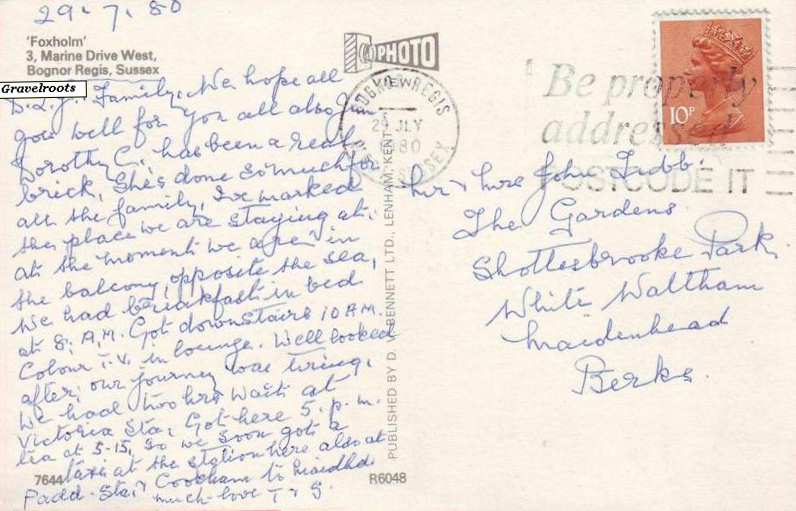 29.7.80
'Foxholm'
3, Marine Drive West,
Bognor Regis, Sussex
Gravelroots
PHOTO
BOGNOR REGIS
29 JLY
1980
SUSSEX
Be properly
addressed
POSTCODE IT
10P
Family, We hope all
goes well for you all also Jim
Dorothy C. has been a real
brick, She's done so much for
all the family, I've marked
the place we are staying at.
at the moment we are in
the balcony, opposite the sea,
We had breakfast in bed
at 8. A.M. Got downstairs 10 A.M.
Colour T.V. in lounge. Well looked
after, our journey was tiring,
We had two hrs wait at
Victoria Sta, Got here 5. p.m.
tea at 5-15, So we soon got a
taxi at the station here also at
Padd. Sta, & Cookham to Maidhd.
much love T & G.
7644
R6048
PUBLISHED BY D. A. BENNETT LTD., LENHAM, KENT
Mr & Mrs John Tubb.
The Gardens
Shottesbrooke Park,
White Waltham
Maidenhead
Berks.